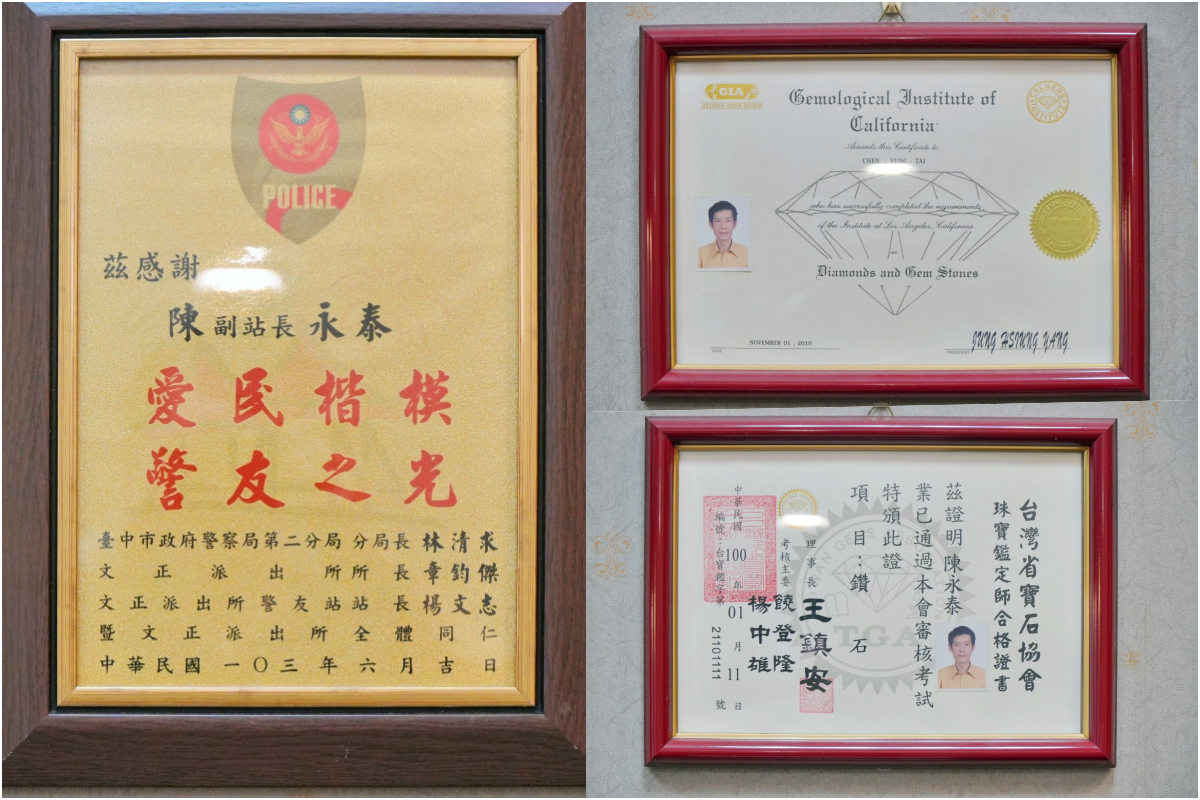 POLICE
茲感謝
陳副站長永泰
愛民楷模
警友之光
臺中市政府警察局第二分局 分局長 林清求
文正派出所所長 章鈞傑
文正派出所警友站站長 楊文志
暨文正派出所全體同仁
中華民國一〇三年六月吉日
GIA
ALUMNI ASSOCIATION
Gemological Institute of
California
Awards this Certificate to
CHEN , YUNG - TAI
who has successfully completed the requirements
of the Institute at Los Angeles, California
in
Diamonds and Gem Stones
NOVEMBER 01 , 2010
DATE
PRESIDENT
JUNG HSIUNG YANG
台灣省寶石協會
珠寶鑑定師合格證書
茲證明陳永泰
業已通過本會審核考試
特頒此證
項 目:鑽 石
理事長 王鎮安
考核主委 饒登隆
楊中雄
中華民國 100 年 01 月 11 日
編號:台寶鑑字第 21101111 號
TGA